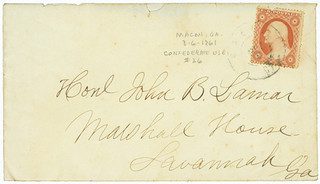 MACON, GA.
3-6-1861
CONFEDERATE USE
#26
Honl John B. Lamar
Marshall House
Savannah
Ga